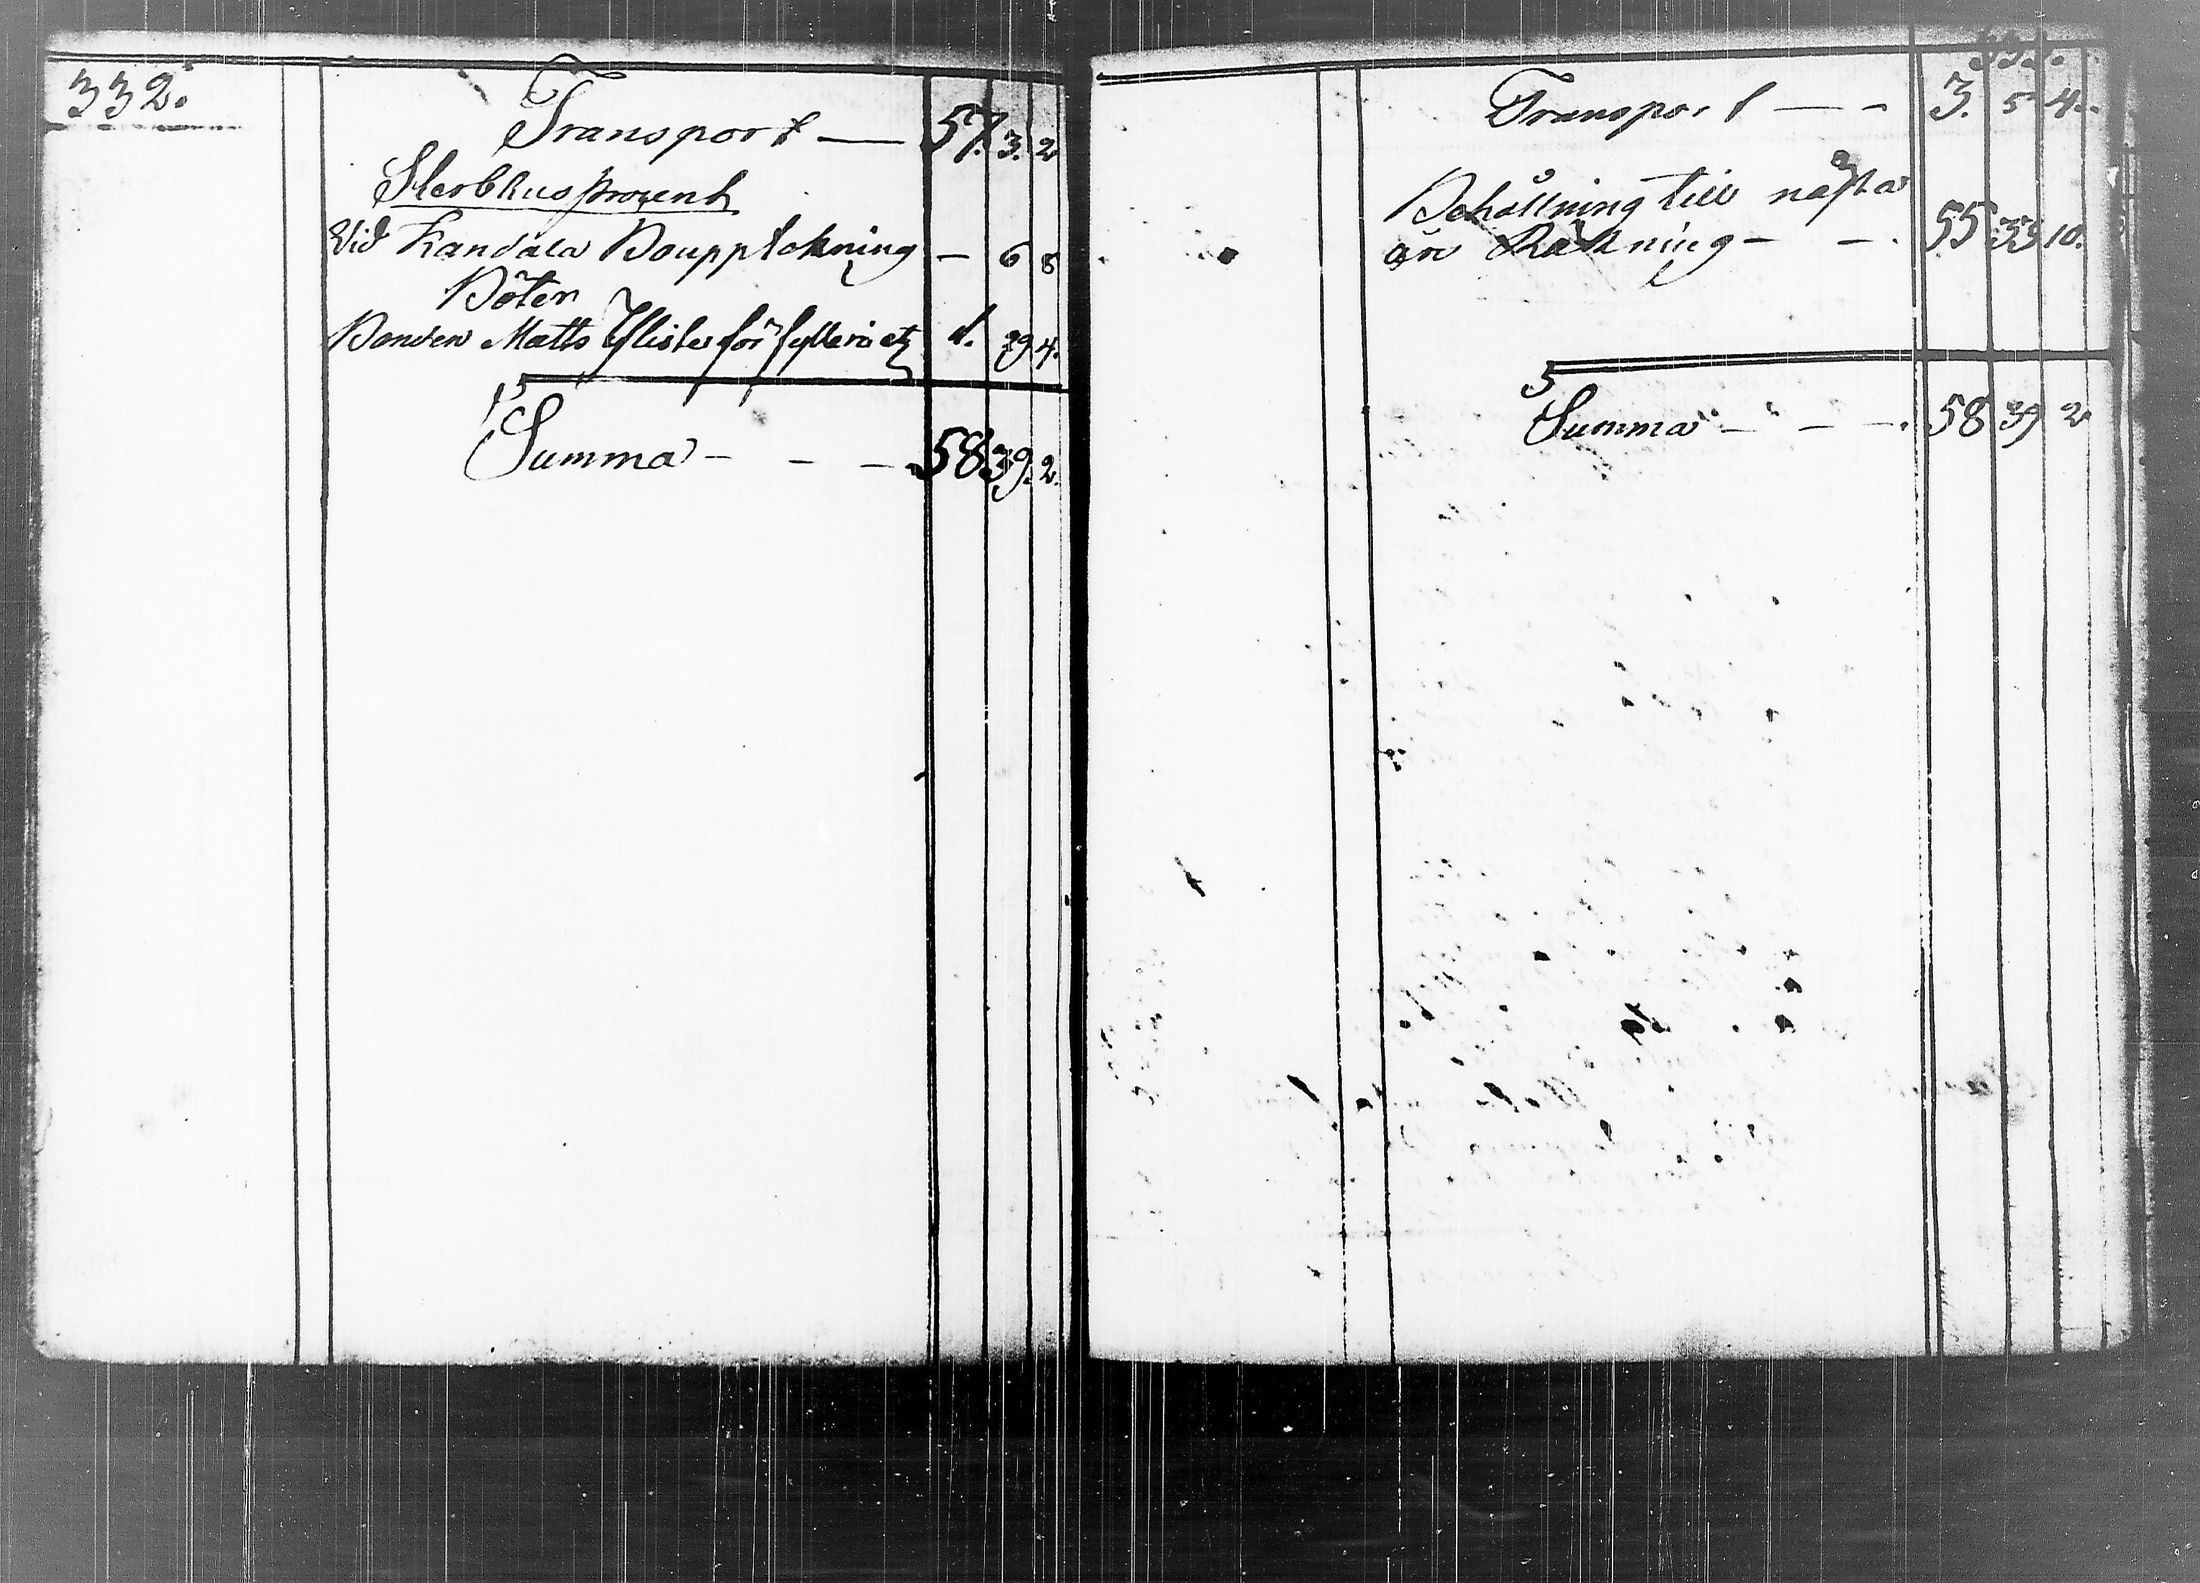 332.
Transport — 57. 3. 2
Sterbhus procent
Vid Kandala Bouppteckning — 6 8
Böter
Bonden Matts Yliste för fylleri etc 1. 29 4.
Summa — — — 58. 39. 2.
333.
Transport — — 3. 5 4.
Behållning till nästa
års Räkning — — . 55 33 10.
Summa — — — . 58 39 2